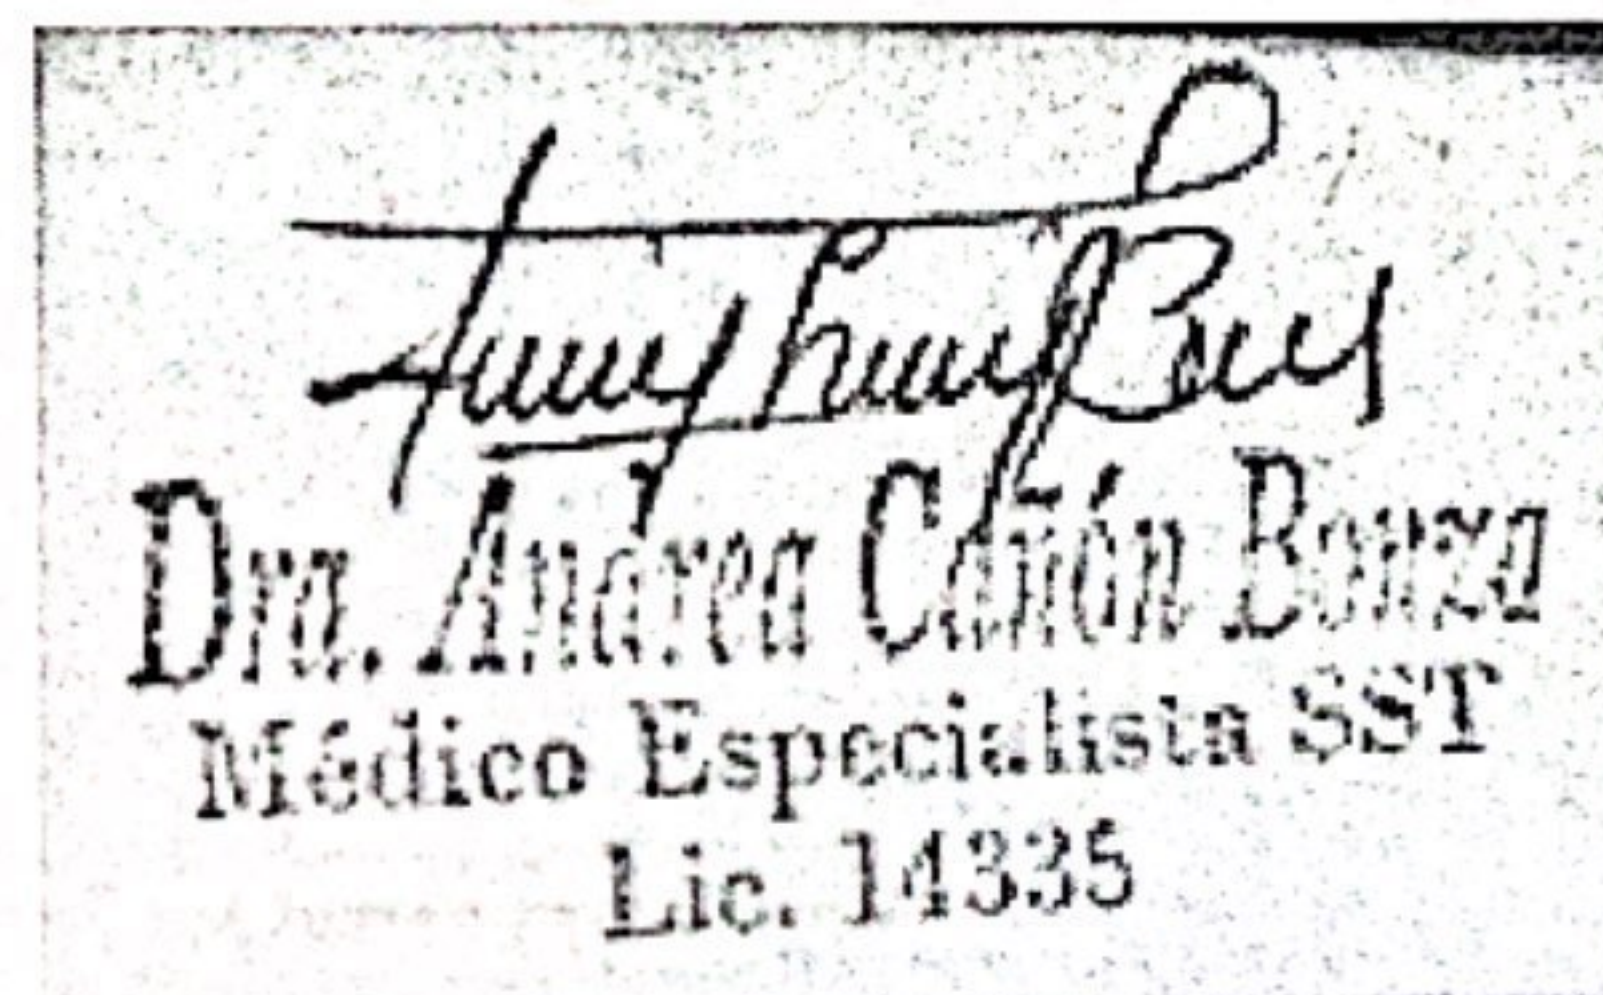 Dra. Andrea Cañón Bonza
Médico Especialista SST
Lic. 14335